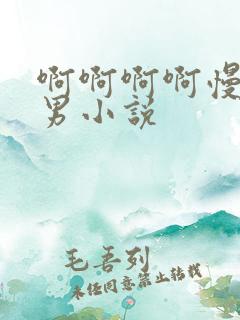 啊啊啊啊慢
男小说
毛吾列
未经同意禁止转载